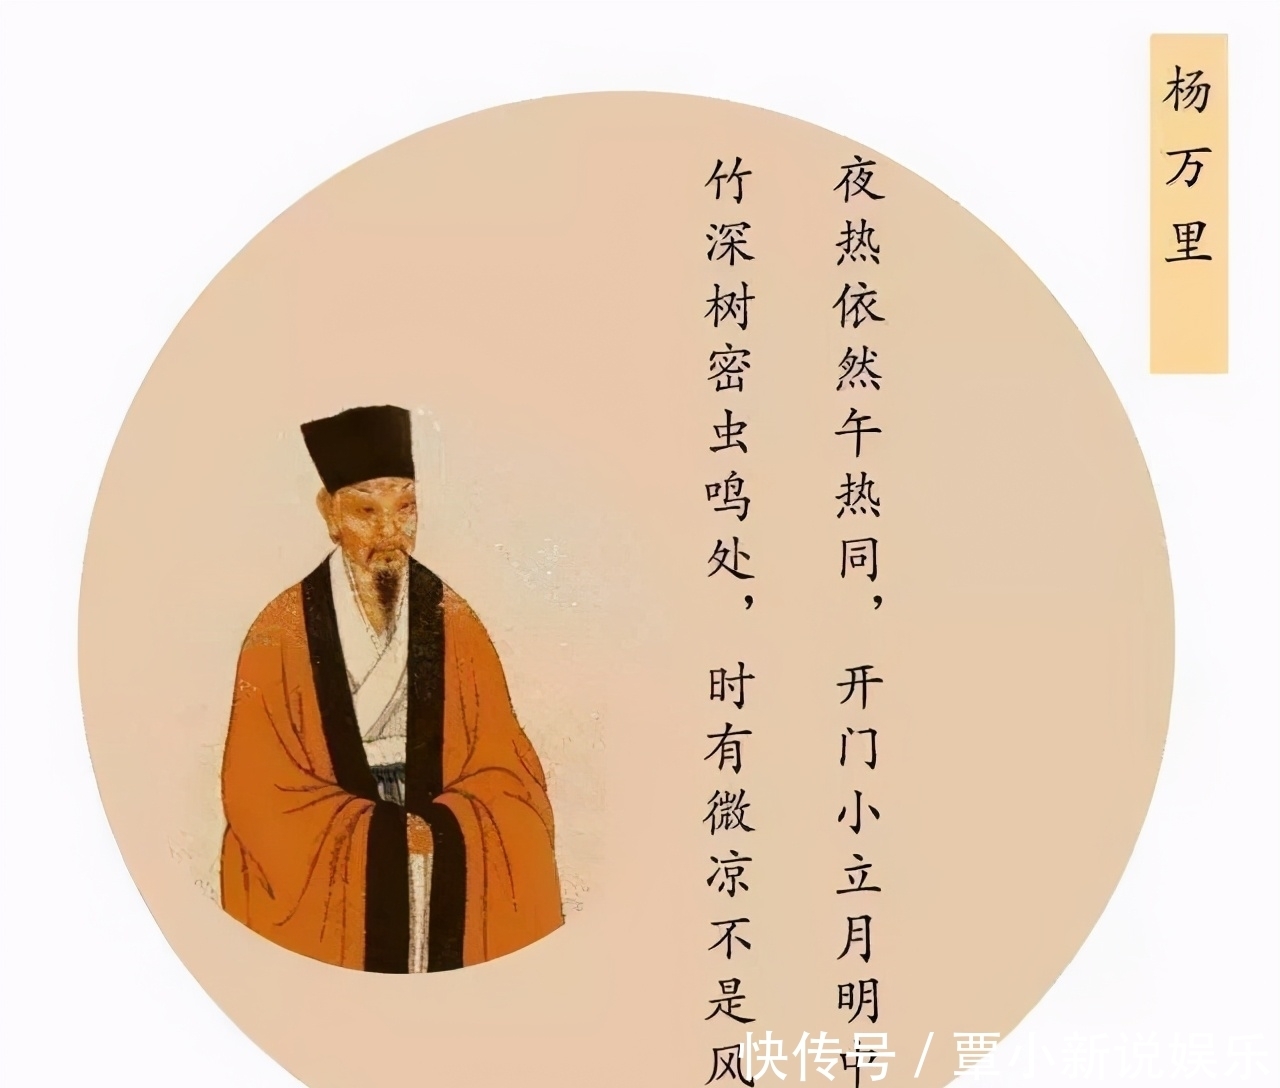 杨万里
夜热依然午热同，开门小立月明中
竹深树密虫鸣处，时有微凉不是风
快传号 / 覃小新说娱乐